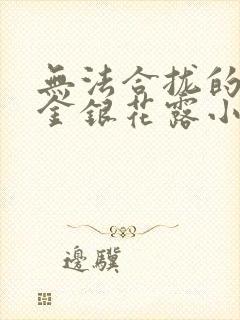 無法合拢的
金銀花露小
邊驥